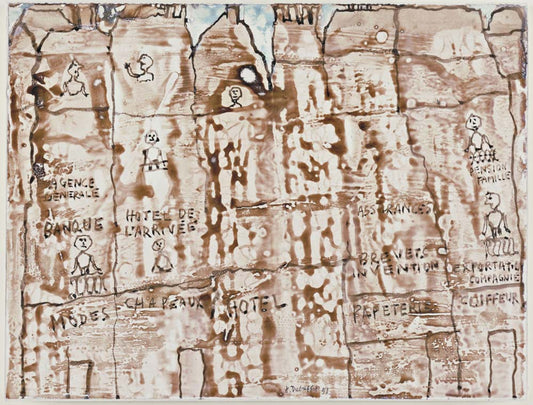 AGENCE
GENERALE
BANQUE
HOTEL DE
L'ARRIVÉE
ASSURANCES
PENSION
FAMILLE
BREVETS
INVENTION
EXPORTATIO
COMPAGNIE
MODES
CHAPEAUX
HOTEL
PAPETERIE
COIFFEUR
J. Dubuffet 57